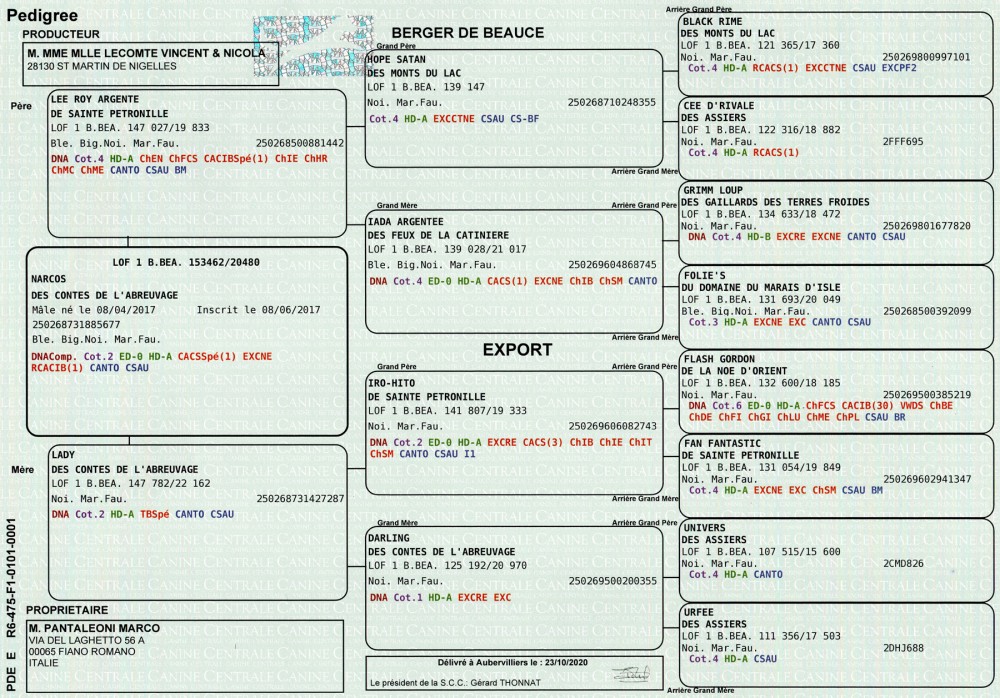 Pedigree
PRODUCTEUR
M. MME MLLE LECOMTE VINCENT & NICOLA
28130 ST MARTIN DE NIGELLES
Père
LEE ROY ARGENTE
DE SAINTE PETRONILLE
LOF 1 B.BEA. 147 027/19 833
Ble. Big.Noi. Mar.Fau. 250268500881442
DNA Cot.4 HD-A ChEN ChFCS CACIBSpé(1) ChIE ChHR
ChMC ChME CANTO CSAU BM
LOF 1 B.BEA. 153462/20480
NARCOS
DES CONTES DE L'ABREUVAGE
Mâle né le 08/04/2017 Inscrit le 08/06/2017
250268731885677
Ble. Big.Noi. Mar.Fau.
DNAComp. Cot.2 ED-0 HD-A CACSSpé(1) EXCNE
RCACIB(1) CANTO CSAU
Mère
LADY
DES CONTES DE L'ABREUVAGE
LOF 1 B.BEA. 147 782/22 162
Noi. Mar.Fau. 250268731427287
DNA Cot.2 HD-A TBSpé CANTO CSAU
PROPRIETAIRE
M. PANTALEONI MARCO
VIA DEL LAGHETTO 56 A
00065 FIANO ROMANO
ITALIE
PDE E R6-475-F1-0101-0001
BERGER DE BEAUCE
Grand Père
HOPE SATAN
DES MONTS DU LAC
LOF 1 B.BEA. 139 147
Noi. Mar.Fau. 250268710248355
Cot.4 HD-A EXCCTNE CSAU CS-BF
Grand Mère
IADA ARGENTEE
DES FEUX DE LA CATINIERE
LOF 1 B.BEA. 139 028/21 017
Ble. Big.Noi. Mar.Fau. 250269604868745
DNA Cot.4 ED-0 HD-A CACS(1) EXCNE ChIB ChSM CANTO
EXPORT
Grand Père
IRO-HITO
DE SAINTE PETRONILLE
LOF 1 B.BEA. 141 807/19 333
Noi. Mar.Fau. 250269606082743
DNA Cot.2 ED-0 HD-A EXCRE CACS(3) ChIB ChIE ChIT
ChSM CANTO CSAU I1
Grand Mère
DARLING
DES CONTES DE L'ABREUVAGE
LOF 1 B.BEA. 125 192/20 970
Noi. Mar.Fau. 250269500200355
DNA Cot.1 HD-A EXCRE EXC
Délivré à Aubervilliers le : 23/10/2020
Le président de la S.C.C.: Gérard THONNAT
Arrière Grand Père
BLACK RIME
DES MONTS DU LAC
LOF 1 B.BEA. 121 365/17 360
Noi. Mar.Fau. 250269800997101
Cot.4 HD-A RCACS(1) EXCCTNE CSAU EXCPF2
CEE D'RIVALE
DES ASSIERS
LOF 1 B.BEA. 122 316/18 882
Noi. Mar.Fau. 2FFF695
Cot.4 HD-A RCACS(1)
Arrière Grand Mère
Arrière Grand Père
GRIMM LOUP
DES GAILLARDS DES TERRES FROIDES
LOF 1 B.BEA. 134 633/18 472
Noi. Mar.Fau. 250269801677820
DNA Cot.4 HD-B EXCRE EXCNE CANTO CSAU
FOLIE'S
DU DOMAINE DU MARAIS D'ISLE
LOF 1 B.BEA. 131 693/20 049
Ble. Big.Noi. Mar.Fau. 250268500392099
Cot.3 HD-A EXCNE EXC CANTO CSAU
Arrière Grand Mère
Arrière Grand Père
FLASH GORDON
DE LA NOE D'ORIENT
LOF 1 B.BEA. 132 600/18 185
Noi. Mar.Fau. 250269500385219
DNA Cot.6 ED-0 HD-A ChFCS CACIB(30) VWDS ChBE
ChDE ChFI ChGI ChLU ChME ChPL CSAU BR
FAN FANTASTIC
DE SAINTE PETRONILLE
LOF 1 B.BEA. 131 054/19 849
Noi. Mar.Fau. 250269602941347
Cot.4 HD-A EXCNE EXC ChSM CSAU BM
Arrière Grand Mère
Arrière Grand Père
UNIVERS
DES ASSIERS
LOF 1 B.BEA. 107 515/15 600
Noi. Mar.Fau. 2CMD826
Cot.4 HD-A CANTO
URFEE
DES ASSIERS
LOF 1 B.BEA. 111 356/17 503
Noi. Mar.Fau. 2DHJ688
Cot.4 HD-A CSAU
Arrière Grand Mère